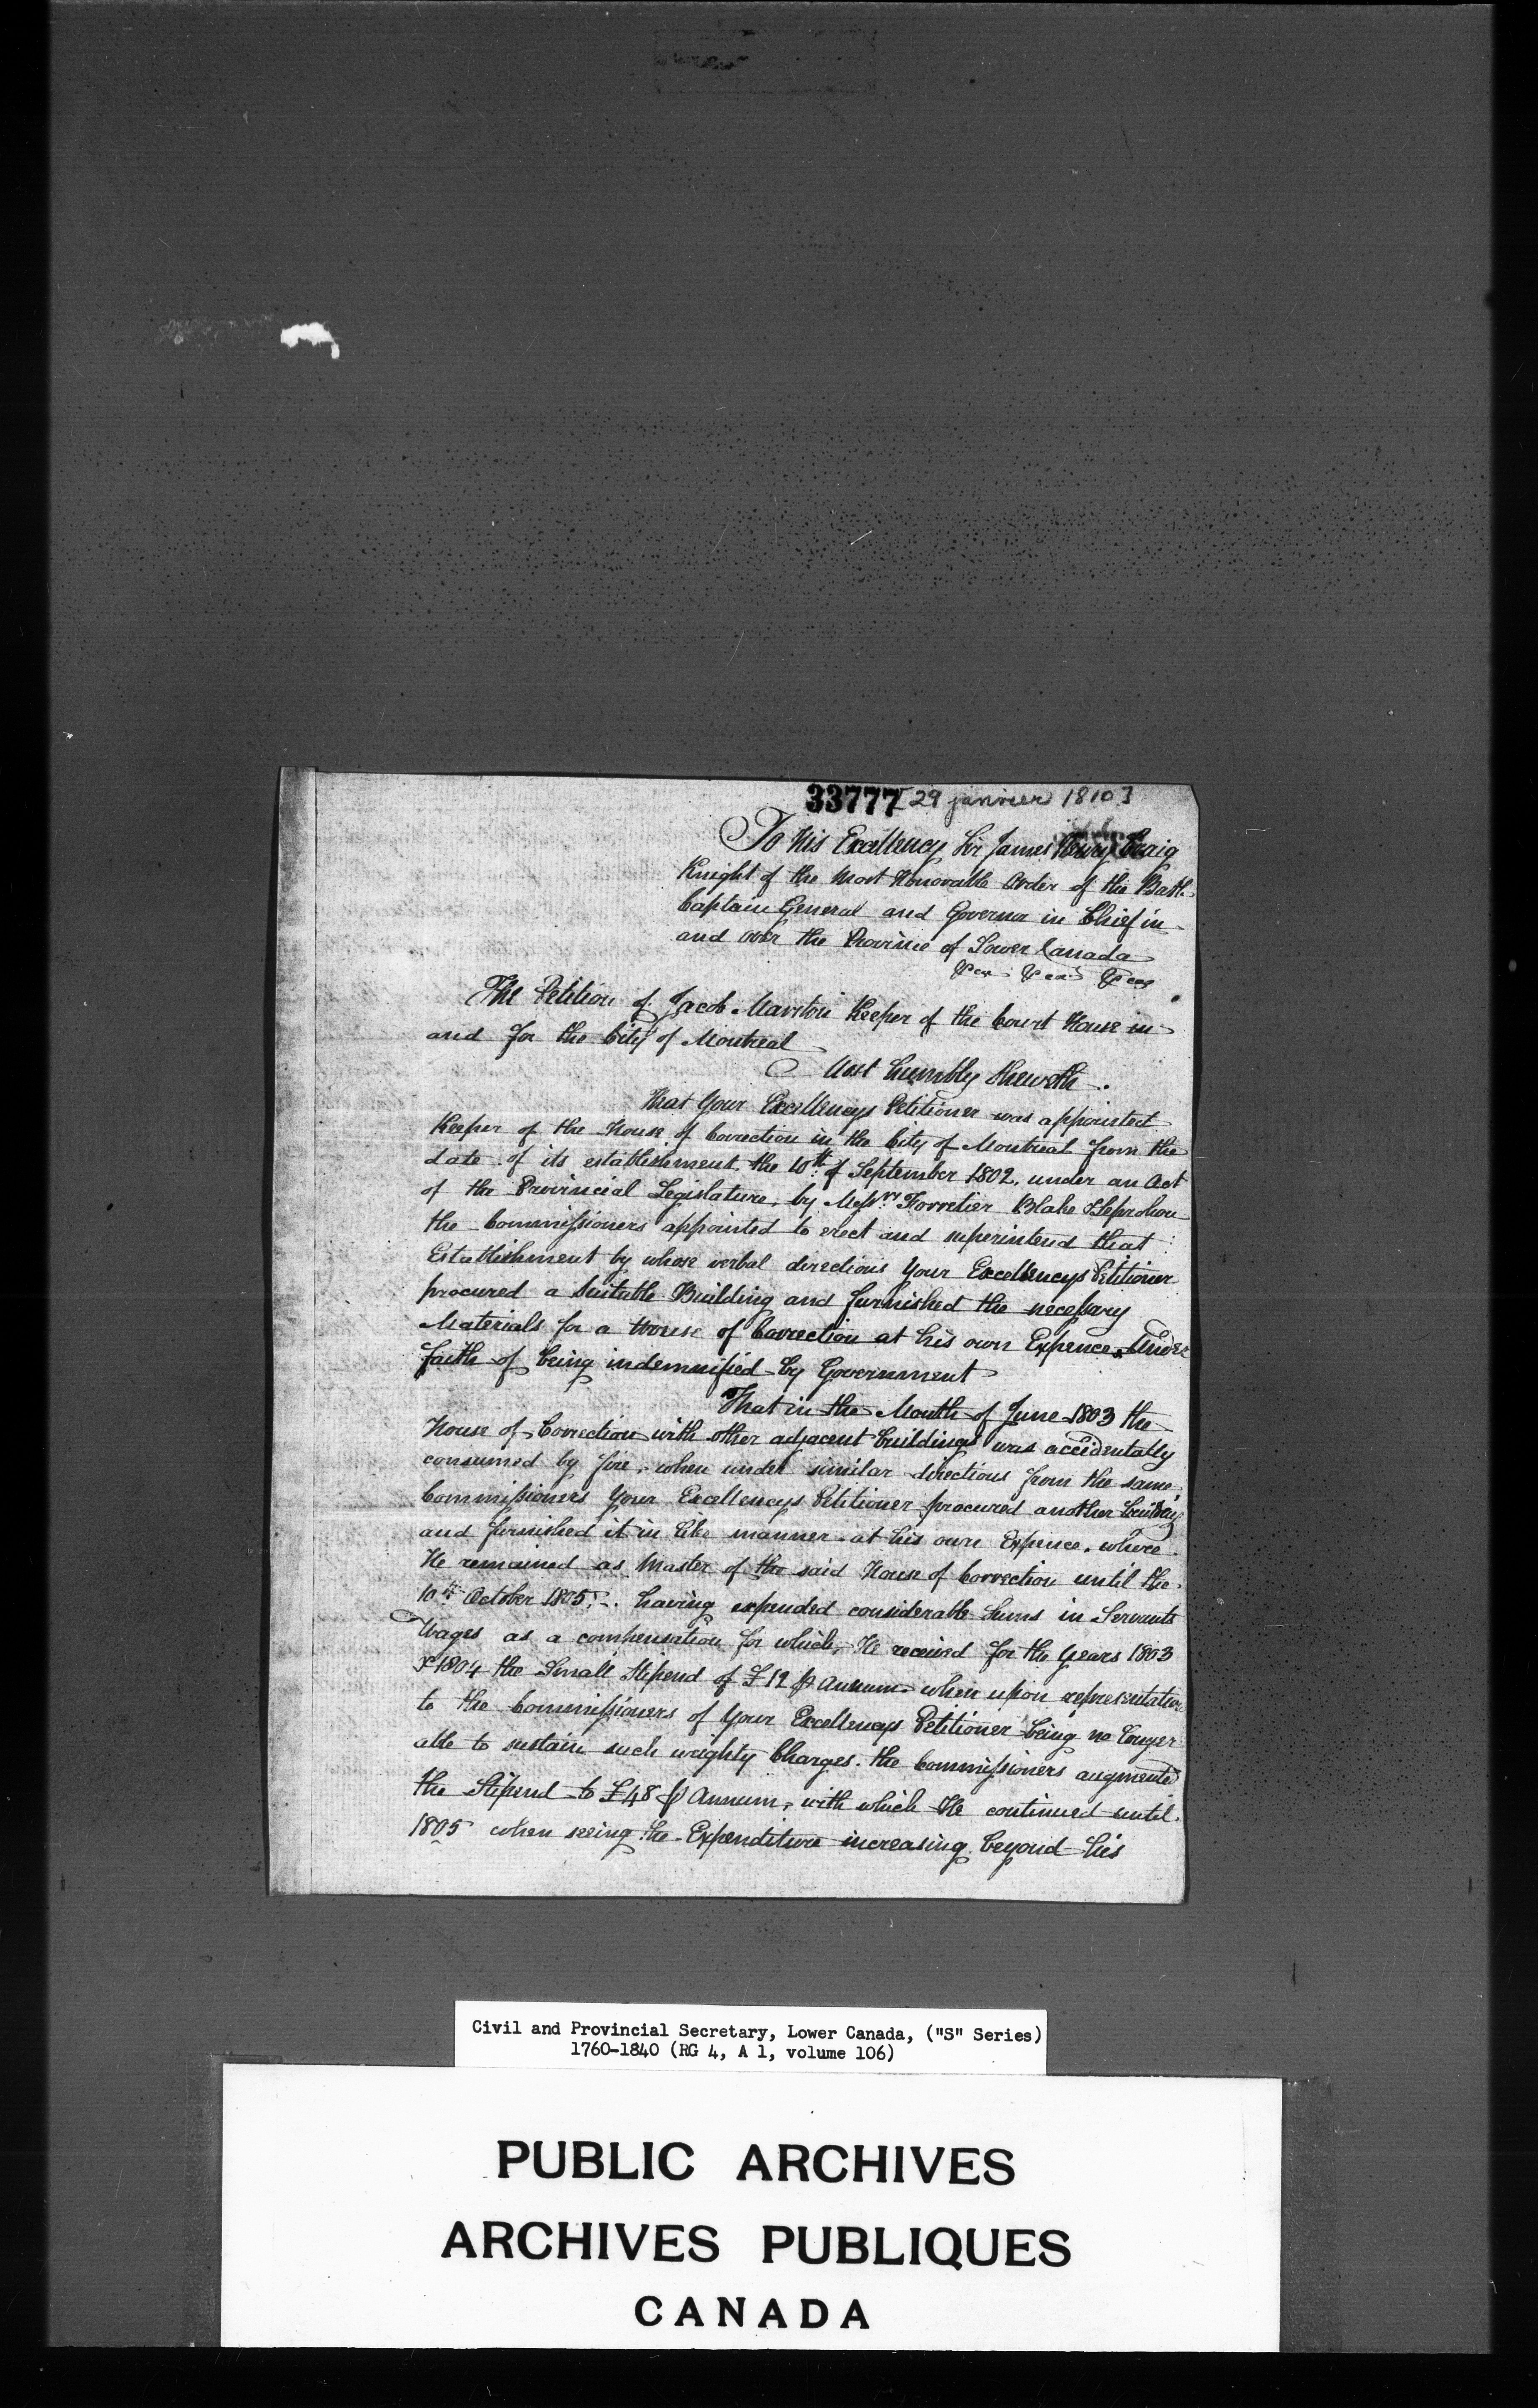 33777 [29 janvier 1810]
To His Excellency Sir James Henry Craig
Knight of the Most Honorable Order of the Bath
Captain General and Governor in Chief in
and over the Province of Lower Canada
&ca &ca &ca
The Petition of Jacob Marston Keeper of the Court House in
and for the City of Montreal
Most humbly Sheweth.
That Your Excellencys Petitioner was appointed
Keeper of the House of Correction in the City of Montreal from the
date of its establishment, the 10th of September 1802, under an Act
of the Provincial Legislature, by Messrs Forretier Blake & Leprohon
the Commissioners appointed to erect and superintend that
Establishment by whose verbal directions Your Excellencys Petitioner
procured a Suitable Building and furnished the necessary
Materials for a House of Correction at his own Expence, Under
faith of being indemnified by Government
That in the Month of June 1803 the
House of Correction with other adjacent buildings was accidentally
consumed by fire, when under similar directions from the same
Commissioners Your Excellencys Petitioner procured another building
and furnished it in like manner at his own Expence, where
He remained as Master of the said House of Correction until the
10th October 1805. having expended considerable Sums in Servants
Wages as a compensation for which, He received for the Years 1803
& 1804 the Small Stipend of £12 p Annum when upon representation
to the Commissioners of Your Excellencys Petitioner being no longer
able to sustain such weighty Charges. the Commissioners augmented
the Stipend to £48 p Annum, with which He continued until
1805 when seeing the Expenditure increasing beyond his
Civil and Provincial Secretary, Lower Canada, ("S" Series)
1760-1840 (RG 4, A 1, volume 106)
PUBLIC ARCHIVES
ARCHIVES PUBLIQUES
CANADA